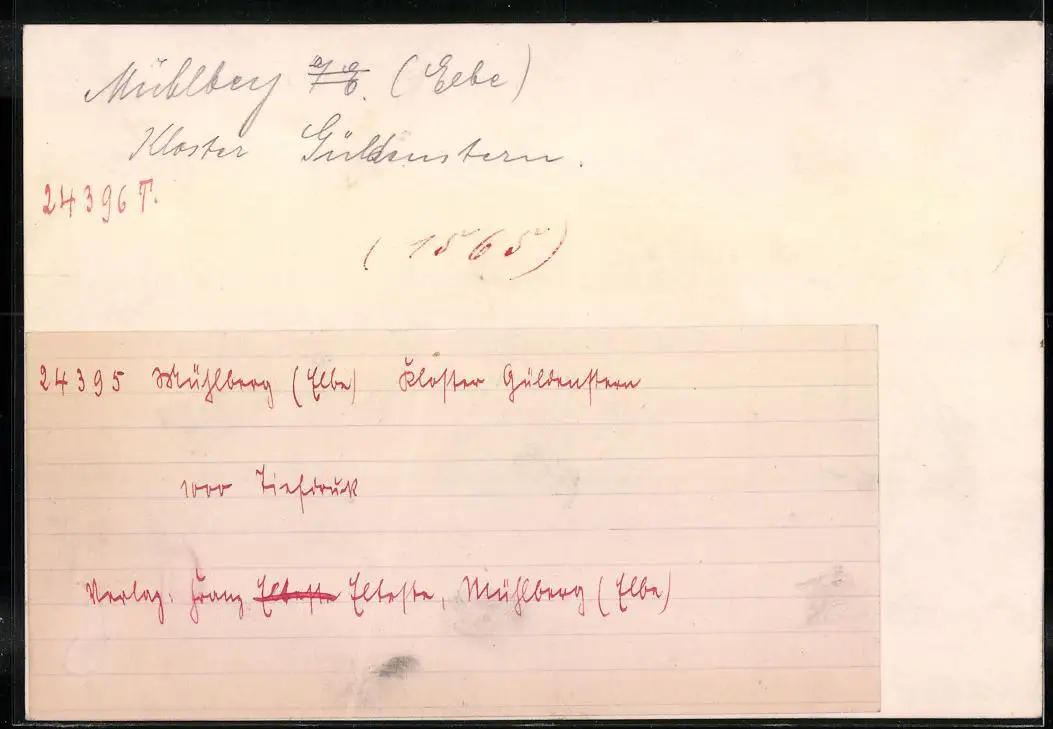 Mühlberg (Elbe)
Kloster Güldenstern.
24396 T.
(1565)
24395 Mühlberg (Elbe) Kloster Güldenstern
1000 Tiefdruck
Verlag: Franz Elteste Elteste, Mühlberg (Elbe)